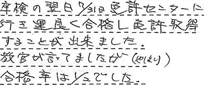 卒検の翌日7/31日免許センターに
行き運良く合格し免許取得
することが出来ました。
教官が言てましたが(ﾔﾊﾘ)
合格率は1/3でした。